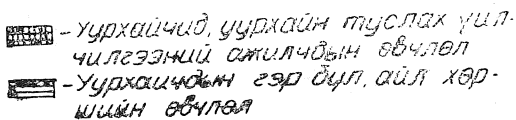 -Уурхайчид, уурхайн туслах үйл-
чилгээний ажилчдын өвчлөл
-Уурхайчдын гэр бүл, айл хөр-
шийн өвчлөл